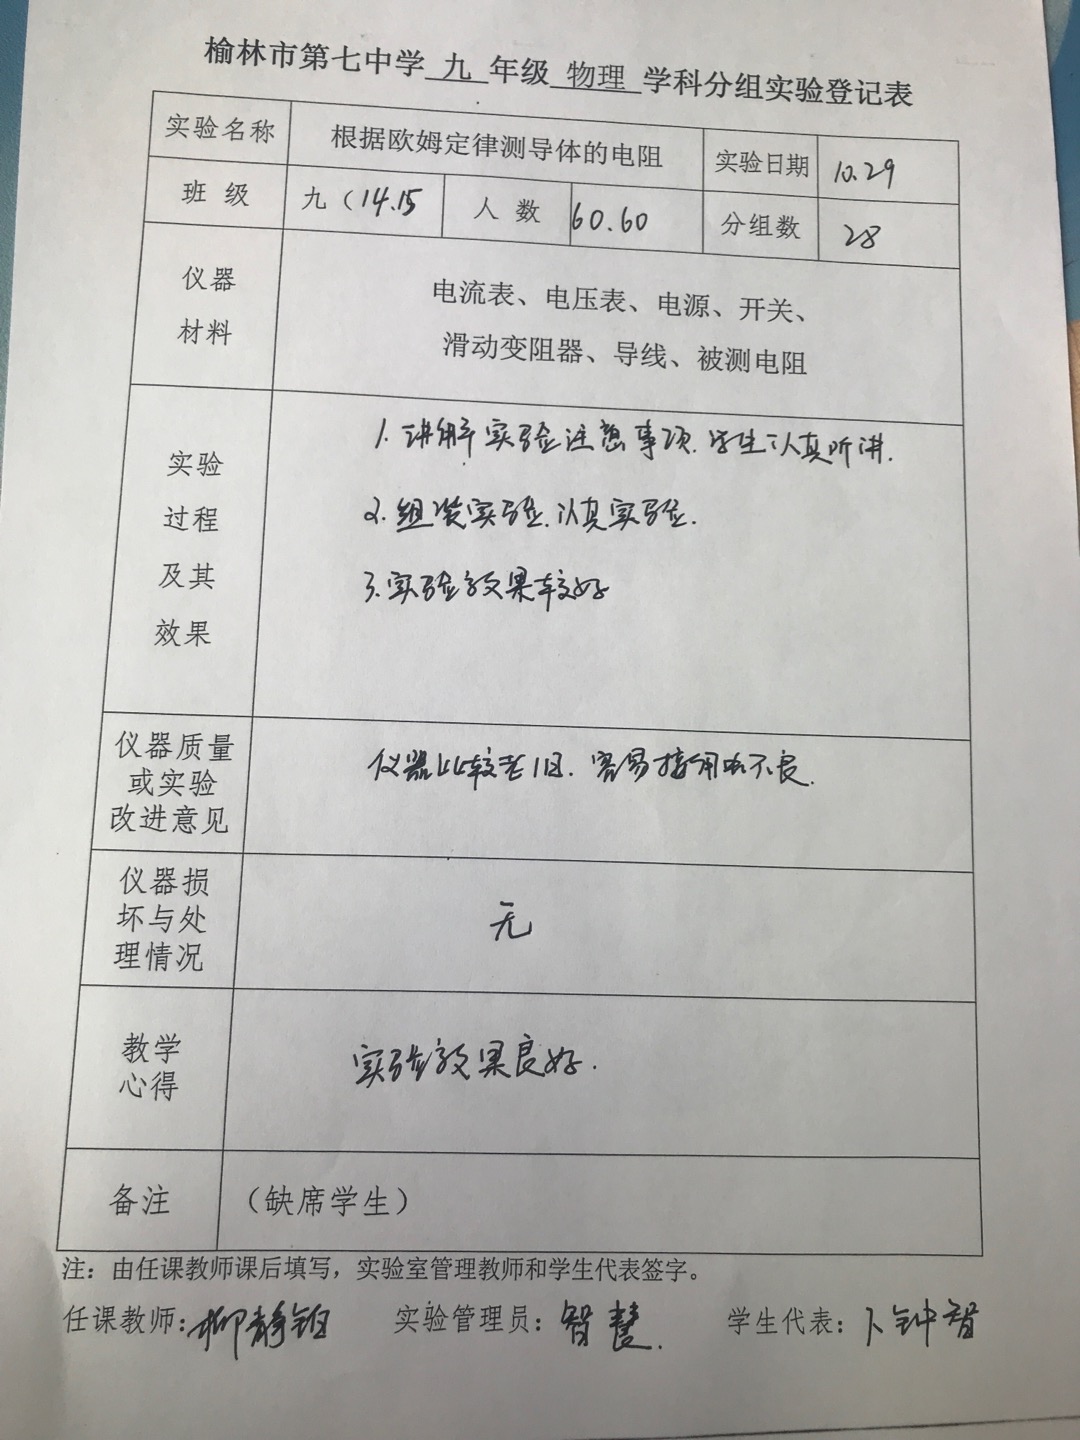 榆林市第七中学 九 年级 物理 学科分组实验登记表
实验名称 根据欧姆定律测导体的电阻 实验日期 10.29
班 级 九（14.15 人 数 60.60 分组数 28
仪器
材料
电流表、电压表、电源、开关、
滑动变阻器、导线、被测电阻
实验
过程
及其
效果
1. 讲解实验注意事项.学生认真听讲.
2. 组装实验.认真实验.
3. 实验效果较好
仪器质量
或实验
改进意见
仪器比较老旧.容易接触不良.
仪器损
坏与处
理情况
无
教学
心得
实验效果良好.
备注 （缺席学生）
注：由任课教师课后填写，实验室管理教师和学生代表签字。
任课教师:柳静 实验管理员: 智慧. 学生代表: 卜钟智